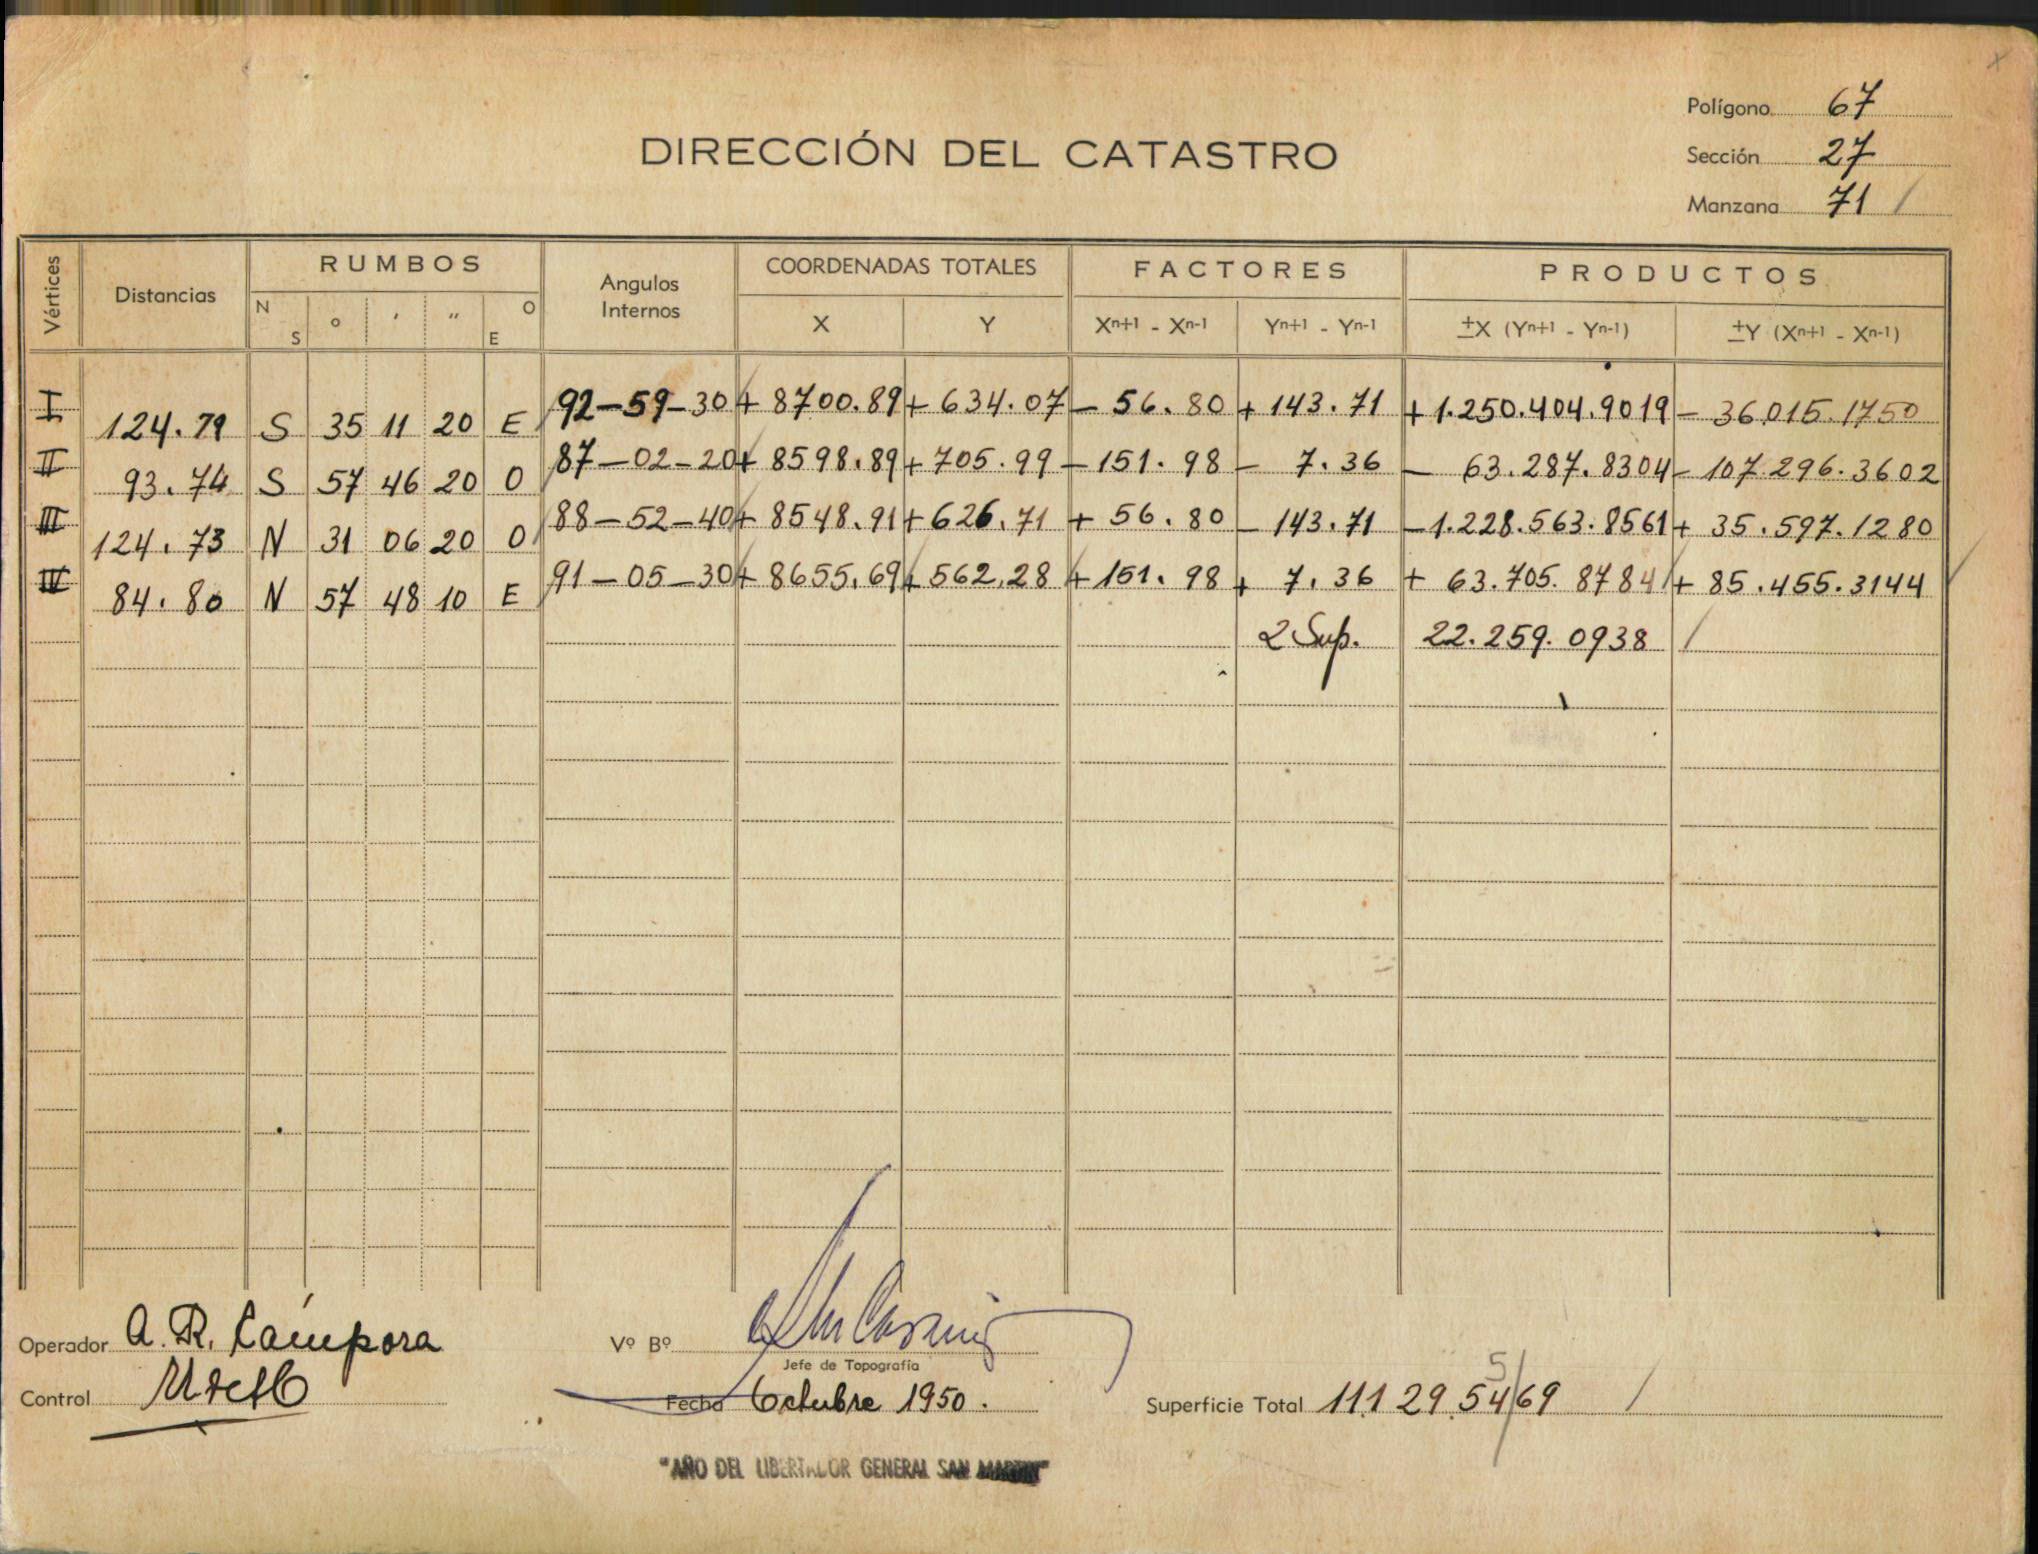 Polígono 67
DIRECCIÓN DEL CATASTRO
Sección 27
Manzana 71
Vértices Distancias RUMBOS Angulos Internos COORDENADAS TOTALES FACTORES PRODUCTOS
N S ° ' " O E X Y Xn+1 - Xn-1 Yn+1 - Yn-1 ±X (Yn+1 - Yn-1) ±Y (Xn+1 - Xn-1)
I 124.79 S 35 11 20 E 92-59-30 + 8700.89 + 634.07 - 56.80 + 143.71 + 1.250.404.9019 - 36.015.1750
II 93.74 S 57 46 20 O 87-02-20 + 8598.89 + 705.99 - 151.98 - 7.36 - 63.287.8304 - 107.296.3602
III 124.73 N 31 06 20 O 88-52-40 + 8548.91 + 626.71 + 56.80 - 143.71 - 1.228.563.8561 + 35.597.1280
IV 84.80 N 57 48 10 E 91-05-30 + 8655.69 + 562.28 + 151.98 + 7.36 + 63.705.8784 + 85.455.3144
2 Sup. 22.259.0938
Operador A. R. Cámpora
Vº Bº
Jefe de Topografía
Control
Fecha Octubre 1950.
Superficie Total 11129.54 69
5
"AÑO DEL LIBERTADOR GENERAL SAN MARTIN"